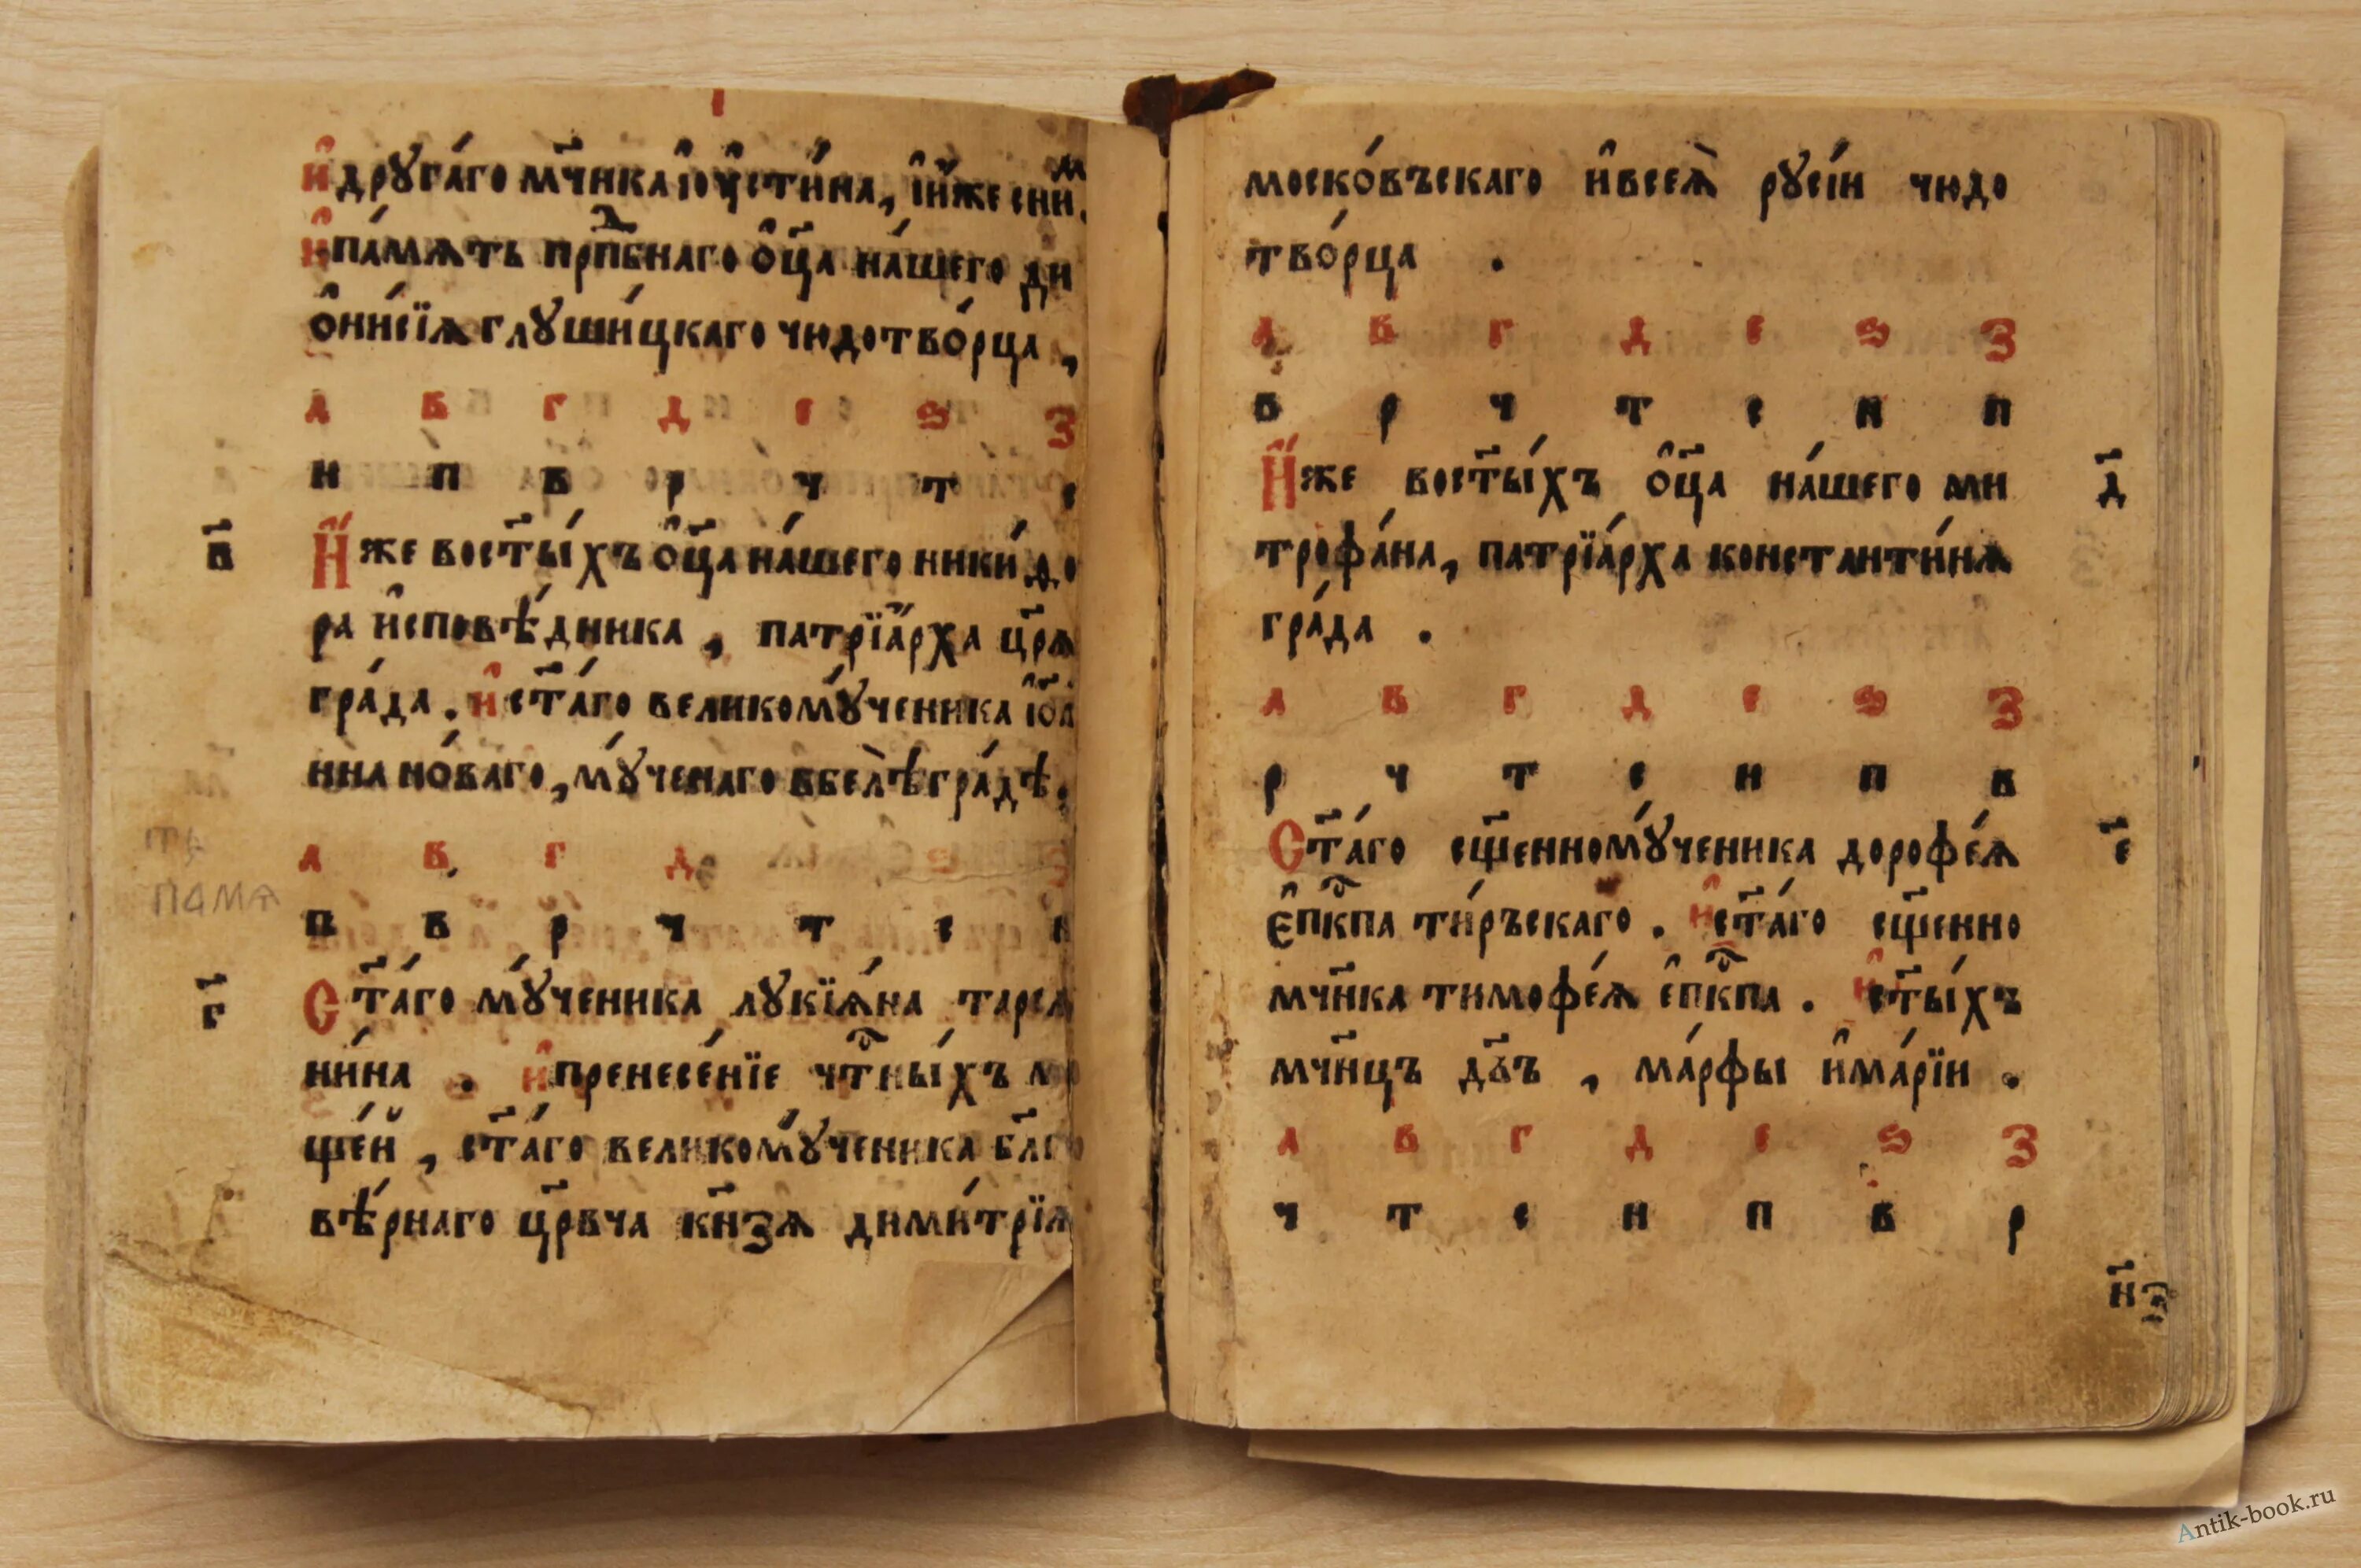 и҆ друга́го мч҃нка і҆оу҆сти́на, и҆́же с ни́м
и҆ па́мѧть прпⷣбнаго ѻ҆ц҃а на́шего ди
ѻ҆ни́сїѧ глуши́цкаго чюдотво́рца,
а в г д е ѕ з
н п в р ч т с
в҃ И҆́же во ст҃ы́хъ ѻ҆ц҃а на́шего ники́фо
ра и҆сповѣ́дника, патрїа́рха цр҃ѧ
гра́да. и҆ ст҃а́го великомꙋ́ченика і҆ѡ҃а
нна но́ваго, мꙋ́ченаго в белѣ̀гра́дѣ.
а в г д е ѕ з
п в р ч т с н
г҃ Ст҃а́го мꙋ́ченика лукїѧ́на тарсѧ
ни́на. и҆ пренесе́нїе чтⷭ҇ны́хъ мо
ще́й, ст҃а́го великомꙋ́ченика бл҃го
вѣ́рнаго цр҃вча кн҃зѧ дими́трїѧ
моско́въскаго и҆ всеѧ̀ русі́и чюдо
тво́рца.
а в г д е ѕ з
в р ч т с н п
И҆́же во ст҃ы́хъ ѻ҆ц҃а на́шего ми д҃
трофа́на, патрїа́рха константи́нѧ
гра́да.
а в г д е ѕ з
р ч т с н п в
Ст҃а́го сщ҃енномꙋ́ченика дорофе́ѧ е҃
є҆пⷭ҇кпа ти́ръскаго. и҆ ст҃а́го сщ҃енно
мч҃нка тимофе́ѧ є҆пⷭ҇кпа. и҆ ст҃ы́хъ
мч҃нцъ дв҃ъ, ма́рфы и҆ ма́рїи.
а в г д е ѕ з
ч т с н п в р
Antik-book.ru